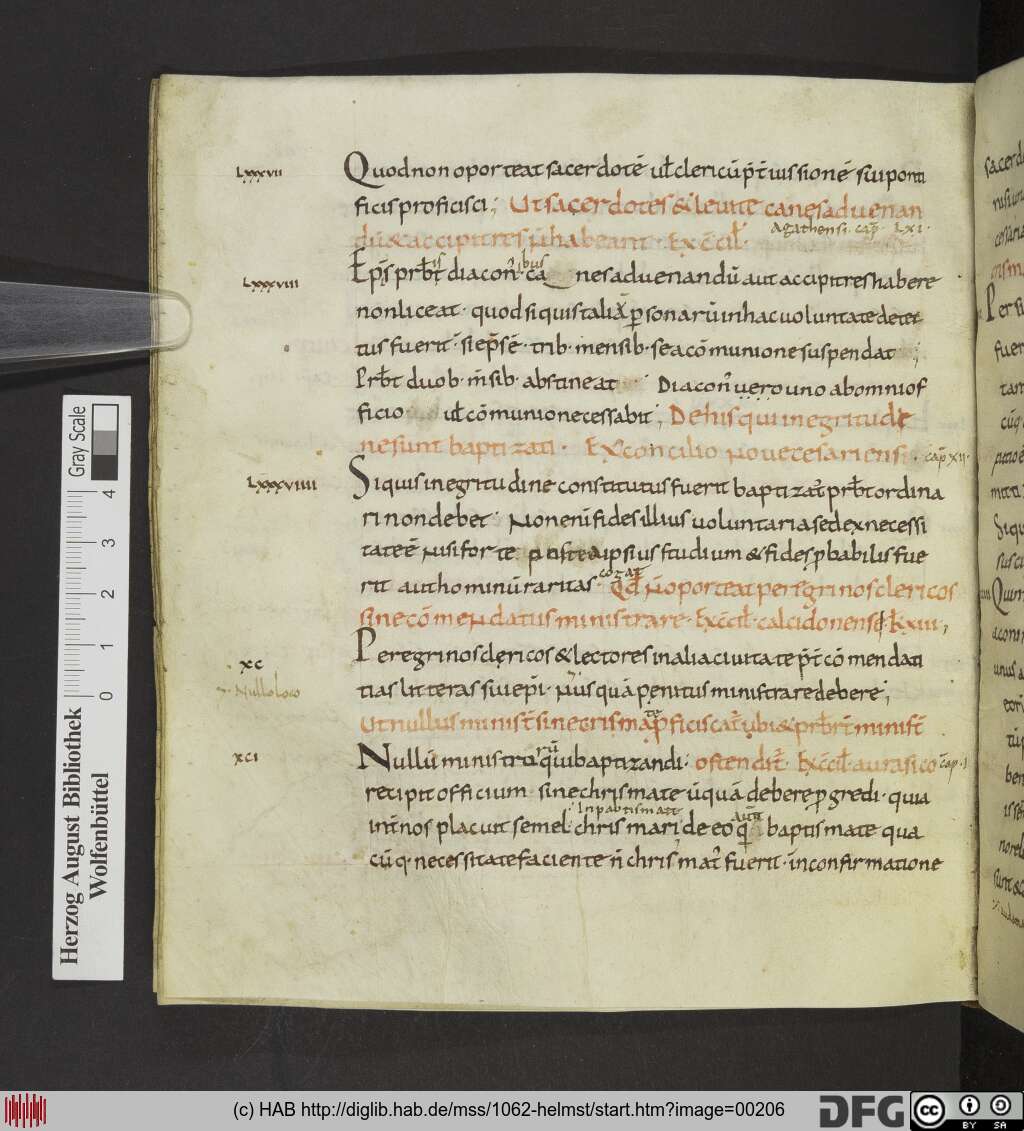 Lxxxvii Quod non oporteat sacerdotē uł clericū p̄t iussionē sui ponti
ficis proficisci; Ut sacerdotes & leuite canes ad uenan
dū & accipitres n̄ habeant. Ex c̄cił. Agathensi. cap̄. LXI.
Lxxxviii Ep̄s prb̄t diacon' ca nes ad uenandū aut accipitres habere
non liceat. quod si quis taliū personarū in hac uoluntate detec
tus fuerit. si ep̄s ē. trib. mensib. se a cōmunione suspendat;
Prb̄t duob. m̄sib. abstineat Diacon' uero uno ab omni of
ficio uł cōmunione cessabit; De his qui in egritudi
ne sunt baptizati. Ex concilio Nouecesariens. cap̄ XII.
Lxxxviiii Si quis in egritudine constitutus fuerit baptizat' prb̄t ordina
ri non debet. Non enī fides illius uoluntaria sed ex necessi
tate ē nisi forte postea ipsius studium & fides p̱babilis fue
rit aut hominū raritas cogat Qd̄ n̄ oporteat peregrinos clericos
sine cōmendatus ministrare. Ex c̄cił. calcidonense. k̄ xiii,
xc Peregrinos clericos & lectores in alia ciuitate p̄t cōmendati
tias litteras sui ep̄i. Nusquā penitus ministrare debere;
Nullo loco
Ut nullus minist̄ sine crismate p̱ficiscat' ubi & prb̄t minist̄
xci Nullū ministrorū qui baptizandi: ostendit'. Ex c̄cił. aurasico cap̄. I
recipit officium. sine chrismate ūquā debere p̱gredi. quia
int' nos placuit semel chrismari; de eo aut̄ q' baptismate qua
In pabtismate
cūq. necessitate faciente n̄ chrismat' fuerit. in confirmatione
Herzog August Bibliothek
Wolfenbüttel
Gray Scale
0 1 2 3 4
(c) HAB http://diglib.hab.de/mss/1062-helmst/start.htm?image=00206
DFG
cc BY SA